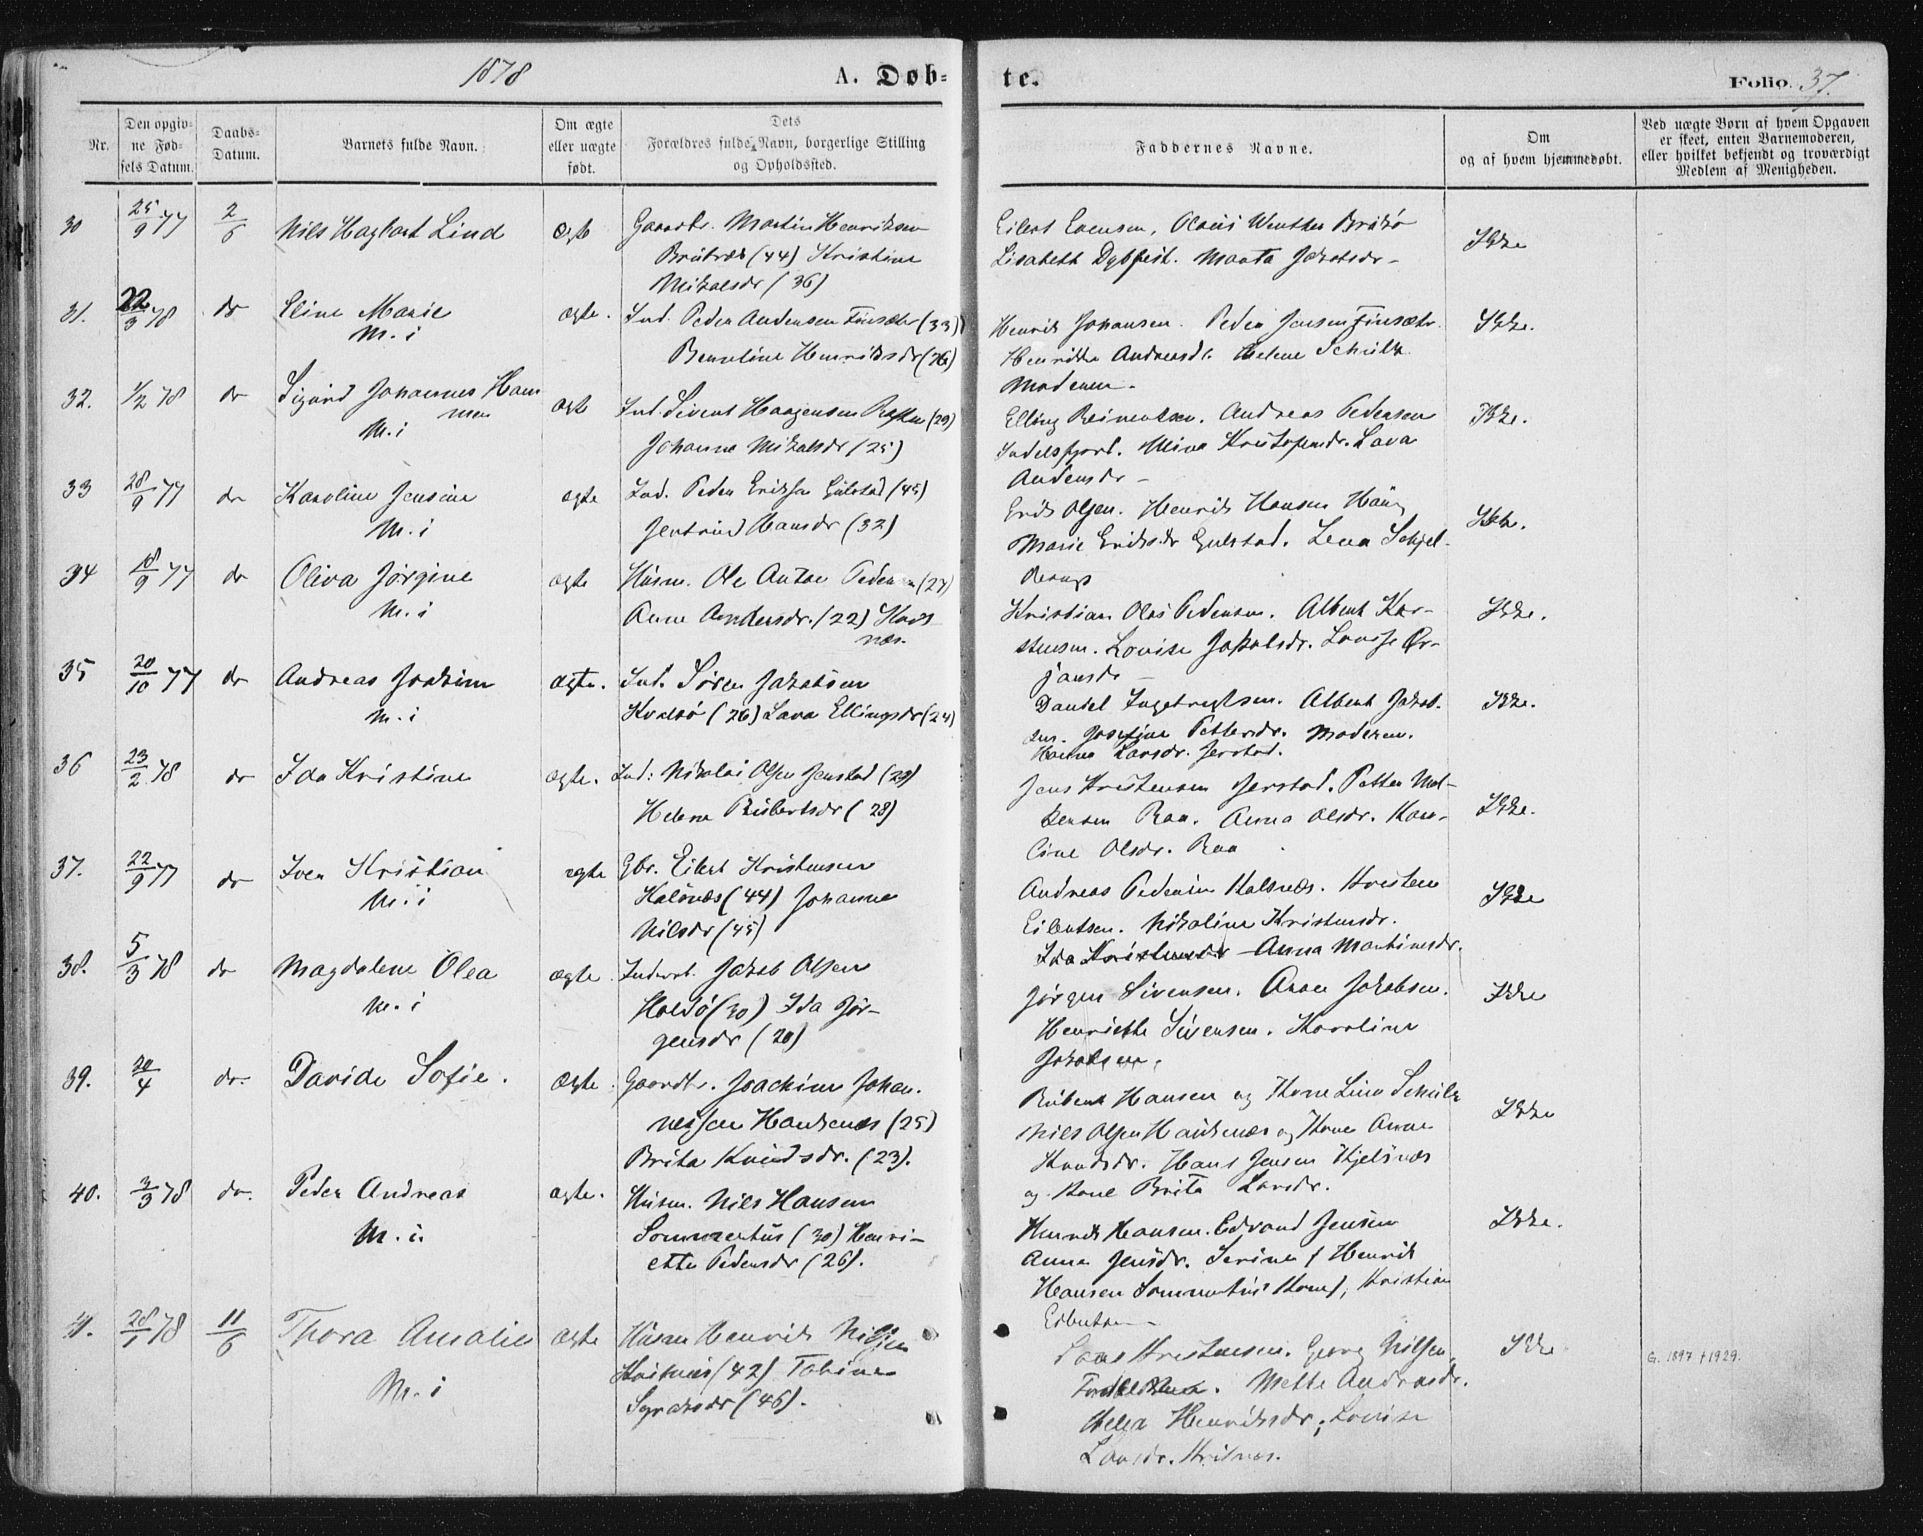 1878
A. Døb-
te.
Folio. 37.
Nr.
Den opgiv-
ne Fød-
sels Datum.
Daabs-
Datum.
Barnets fulde Navn.
Om ægte
eller uægte
født.
Dets
Forældres fulde Navn, borgerlige Stilling
og Opholdssted.
Faddernes Navne.
Om
og af hvem hjemmedøbt.
Ved uægte Børn af hvem Opgaven
er skeet, enten Barnemoderen,
eller hvilket bekjendt og troværdigt
Medlem af Menigheden.
30 25/9 77 2/6 Nils Hagbart Lind ægte Gaardbr. Martin Henriksen
(44) Kristine
Nikolsdr (36)
Lisabeth Dybfest. Marta Jakobsdr -
Ikke
31. 22/3 78 do Eline Marie ægte. Ind. Peder Andersen Finsæter (33)
M. i
Berntine Henriksdr (26)
Henrik Johansen. Peder Jensen Finsætr.
Henrikke Andreasdr. Helene Schultz
Moderen -
Ikke.
32. 1/2 78 do Sigurd Johannes Han
sen
M. i
ægte Ind. Sivert Haagensen (29)
Johanna Nikolsdr (25)
Elling Reinertsen. Andreas Pedersen
Indelsfjord. Mina Kristofersdr. Lava
Andersdr -
Ikke.
33 28/9 77 do Karoline Jensine ægte Ind. Peder Eriksen Gulstad (45)
M. i
Jertrud Hansdr (32)
Erik Olsen. Henrik Hansen
Marie Eriksdr Gulstad. Lena Schjel-
derup
Ikke.
34 18/9 77 do Oliva Jørgine ægte Husm. Ole Anton Peders (27)
M. i
Anne Andersdr. (22)
Kristian Olai Pedersen. Albert Kar-
stensen. Lovise Jakobsdr. Lovise Ør-
jansdr -
Ikke.
35 20/10 77 do Andreas Joakim ægte. Ind. Søren Jakobsen
M. i
Kvalø (26) Lava Ellingsdr (24)
Daniel Ingebrigtsen. Albert Jakob-
sen. Josefine Pettersdr. Moderen.
Hanna Larsdr. Jerstad.
Ikke.
36 23/2 78 do Ida Kristine ægte. Ind: Nikolai Olsen Jerstad (29)
Helene Rubertsdr (28)
Jens Kristensen Jerstad. Petter Mol-
Raa. Anna Olsdr. Karo-
line Olsdr. Raa
Ikke.
37. 22/9 77 do Iver Kristian ægte Gbr. Eilert Kristensen
M. i
Kalsnæs (44) Johanna
Nilsdr (45)
Andreas Pedersen Kalsnæs. Kristen
Eilertsen. Nikoline Kristensdr.
Ida Kristensdr - Anna Martinsdr.
Ikke
38. 5/3 78 do Magdalene Olea ægte. Inderst. Jakob Olsen
M. i
Holdø (30) Ida Jør-
gensdr (20)
Jørgen Siversen. Anne Jakobsen.
Henriette Sivertsen. Karoline
Jakobsen.
Ikke
39. 20/4 do. Davida Sofie. ægte. Gaardbr. Joachim Johan-
nessen (25)
Brita Knudsdr. (23).
Rubert Hansen og Kone Lina Schultz
Nils Olsen og Kone Anne
Knudsdr. Hans Jensen Kjelsnæs
og Kone Brita Larsdr.
Ikke
40. 3/3 78 do. Peder Andreas ægte. Husm. Nils Hansen
M. i.
Sommerhus (30) Henri-
ette Pedersdr (26).
Henrik Hansen. Edvard Jensen
Anna Jensdr. Serine (Henrik
Hansen Sommerhus Kone), Kristian
Eilertsen -
Ikke.
41. 28/1 78 11/6 Thora Amalie ægte Husm Henrik Nilsen
M. i
(42) Tobine
(46).
Kristensen. Georg Nilsen,
Mette Andreasdr.
Helea Henriksdr, Lovise
Larsdr.
Ikke
G. 1897 † 1929.